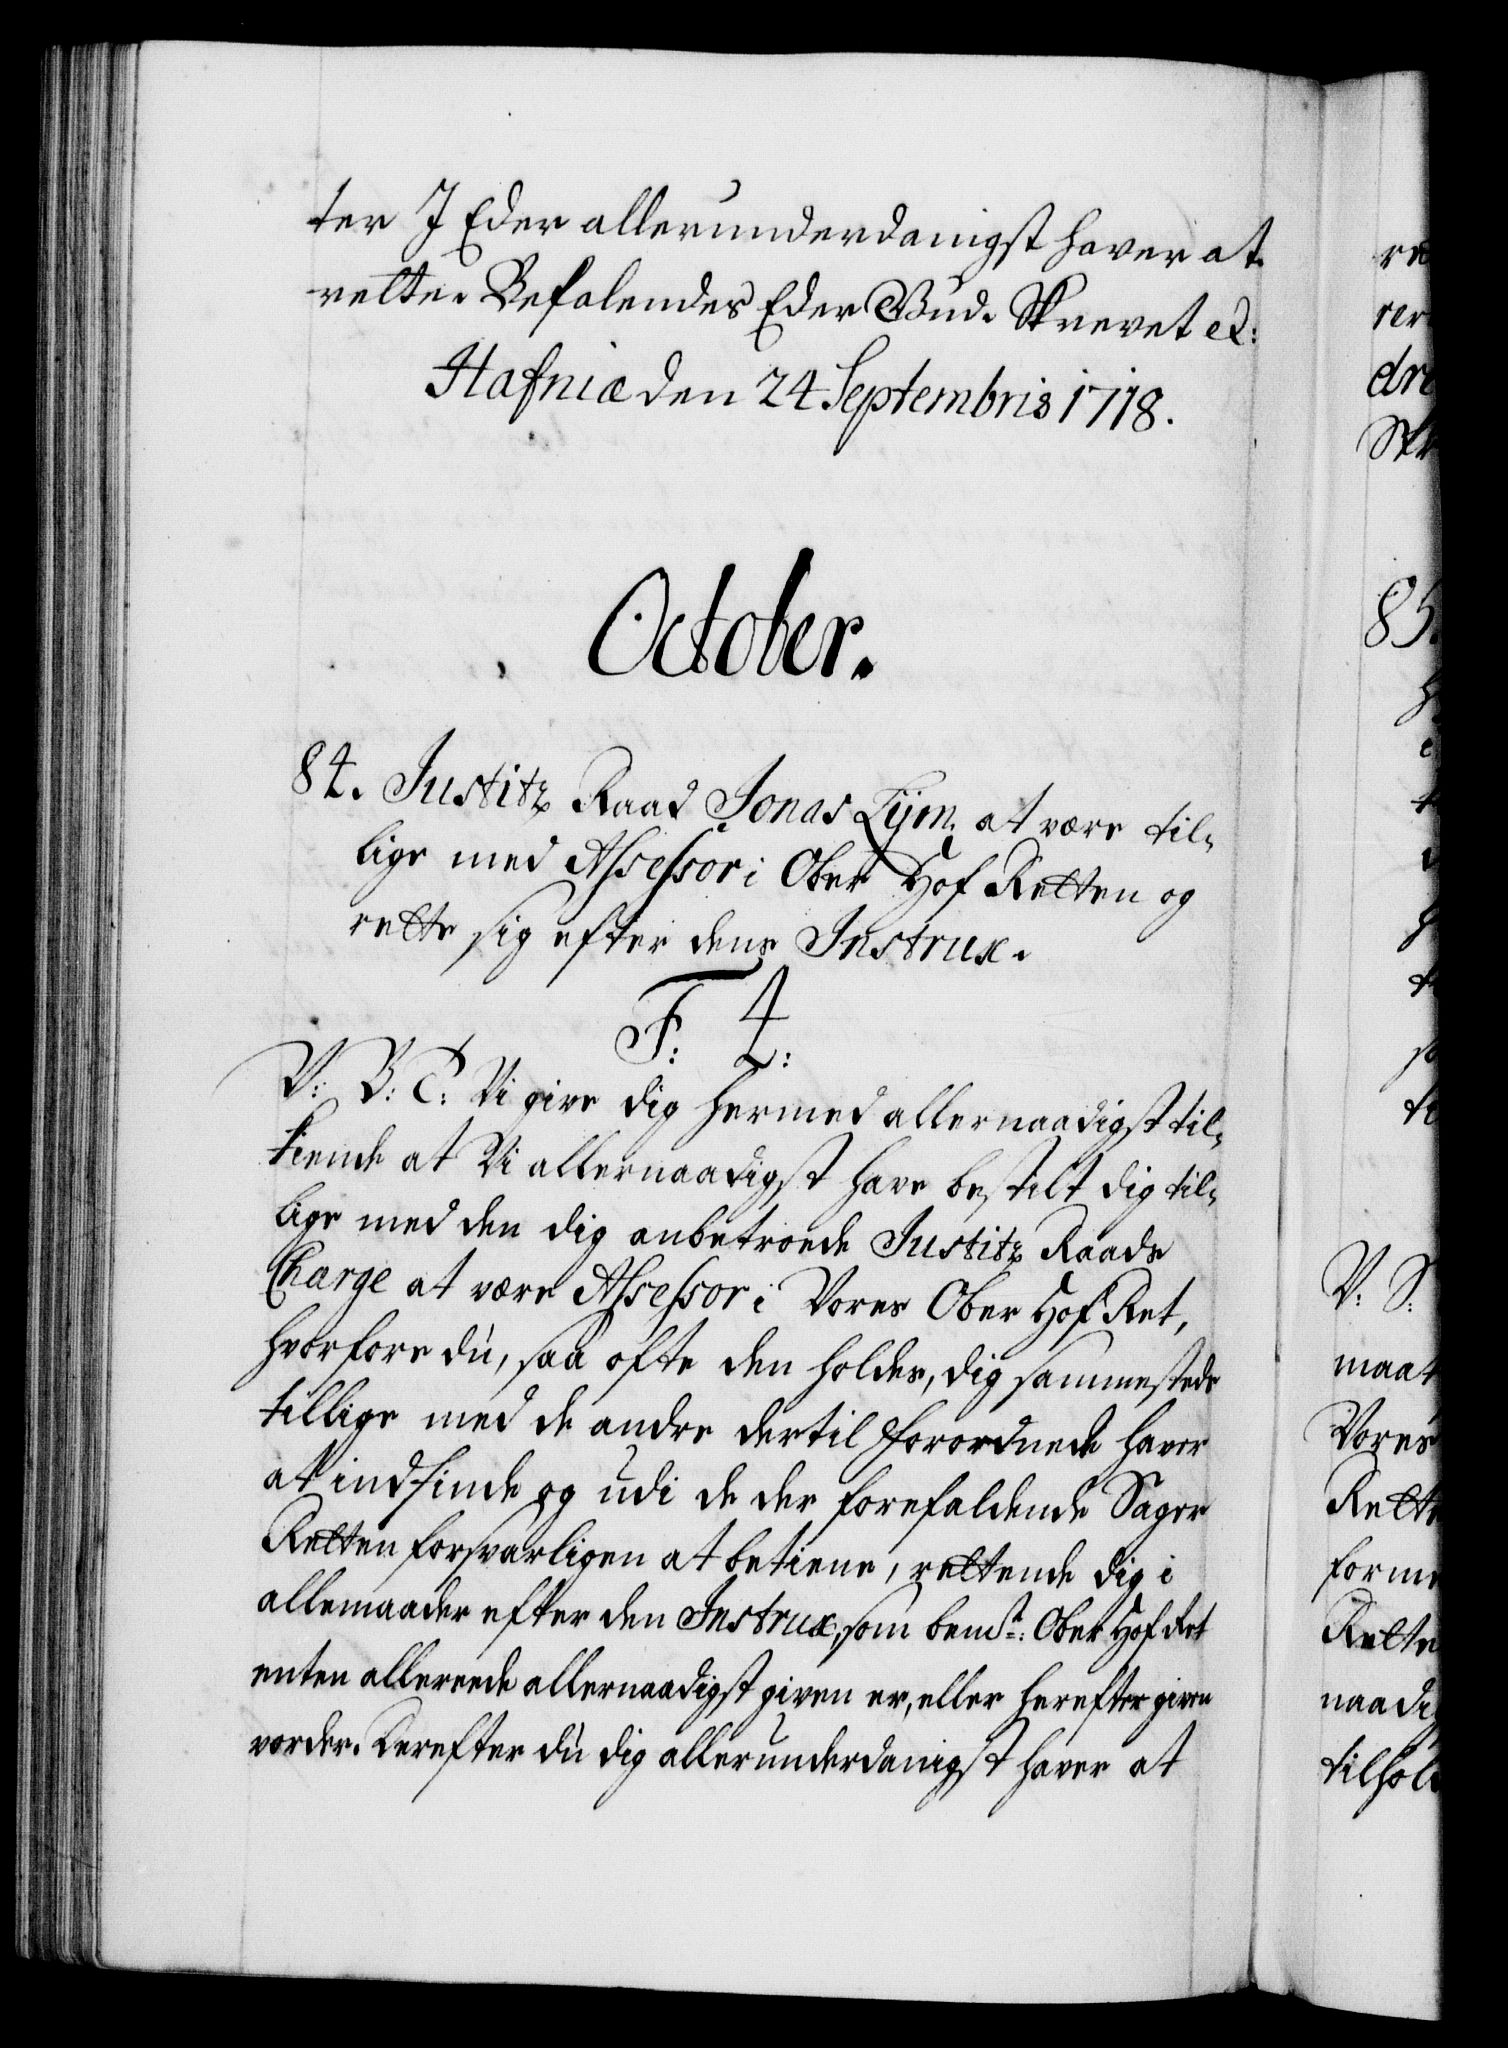 ter I Eder allerunderdanigst haver at
rette. Befalendes Eder Gud. Skrevet etc:
Hafniæ den 24 Septembris 1718.
October.
84. Justitz Raad Jonas Lÿm. at være til-
lige med Assessor i Ober Hof Retten og
rette sig efter dens Instrux.
F. 4:
V: G: T: Vi give dig hermed allernaadigst til-
kiende at Vi allernaadigst have bestilt dig til-
lige med den dig anbetroede Justitz Raads
Charge at være Assessor i Vores Ober Hof Ret,
hvorfore du, saa ofte den holdes, dig sammesteds
tillige med de andre dertil Forordnede haver
at indfinde og udi de der forefaldende Sager
Retten forsvarligen at betiene, rettende dig i
allemaader efter den Instrux, som bemte: Ober Hof Ret
enten allereede allernaadigst given er, eller herefter given
vorder. Derefter du dig allerunderdanigst haver at
rer
dre
Skr
85.
V: S:
maat
Vores
Rett
forme
Rette
naadig
tilhol